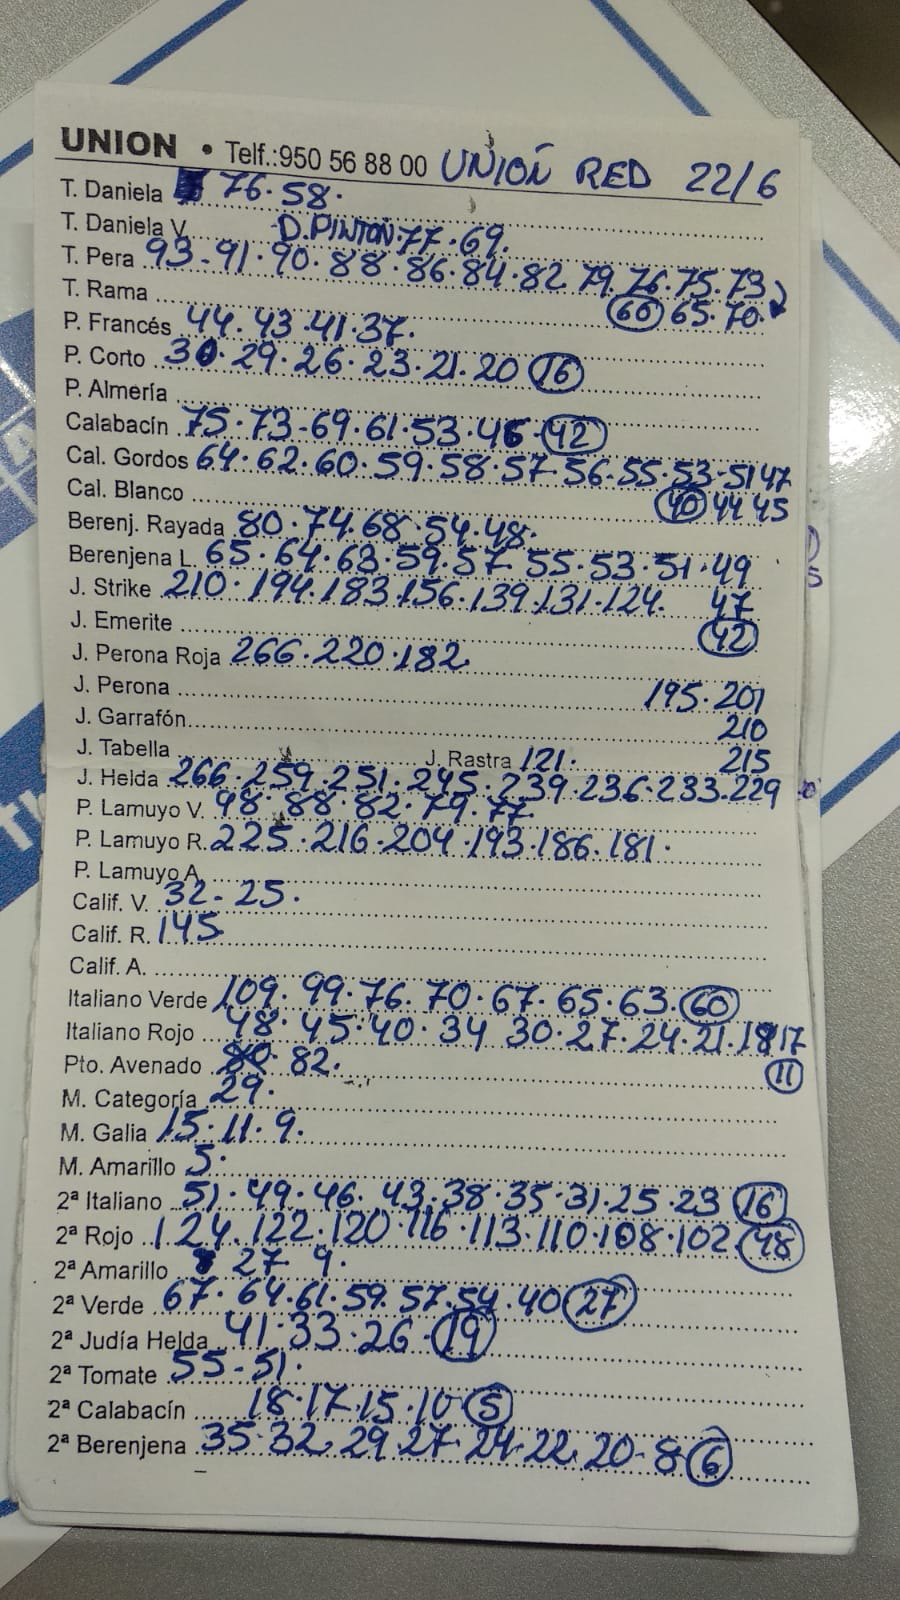 UNION • Telf.:950 56 88 00 UNIÓN RED 22/6
T. Daniela 76·58·
T. Daniela V. D.PINTON 77·69.
T. Pera 93-91·90·88·86·84·82 79.76.75.73
T. Rama 66 65·70
P. Francés 44.43·41·37.
P. Corto 30·29·26·23·21·20 16
P. Almería
Calabacín 75·73-69·61·53·46-42
Cal. Gordos 64·62·60·59·58·57 56·55·53-51 47
Cal. Blanco 40 44 45
Berenj. Rayada 80·74·68·54·48.
Berenjena L. 65·64·63·59·57 55·53·51·49
J. Strike 210·194·183·156·139·131·124. 47
J. Emerite 42
J. Perona Roja 266·220·182
J. Perona 195·201
J. Garrafón 210
J. Tabella J. Rastra 121· 215
J. Helda 266·259·251·245·239 236·233·229
P. Lamuyo V. 98·88·82·79·77
P. Lamuyo R. 225·216·204·193·186·181·
P. Lamuyo A.
Calif. V. 32-25.
Calif. R. 145
Calif. A.
Italiano Verde 109·99·76·70·67·65·63·60
Italiano Rojo 48·45·40·34 30·27·24·21·18 17
Pto. Avenado 80 82. 11
M. Categoría 29.
M. Galia 15·11·9.
M. Amarillo 5·
2ª Italiano 51·49·46·43·38·35·31·25·23 16
2ª Rojo 124·122·120·116·113·110·108·102 98
2ª Amarillo 27 9.
2ª Verde 67·64·61·59·57·54·40 27
2ª Judía Helda 41·33·26·19
2ª Tomate 55-51·
2ª Calabacín 18·17·15·10 5
2ª Berenjena 35·32 29 27 24·22 20-8 6